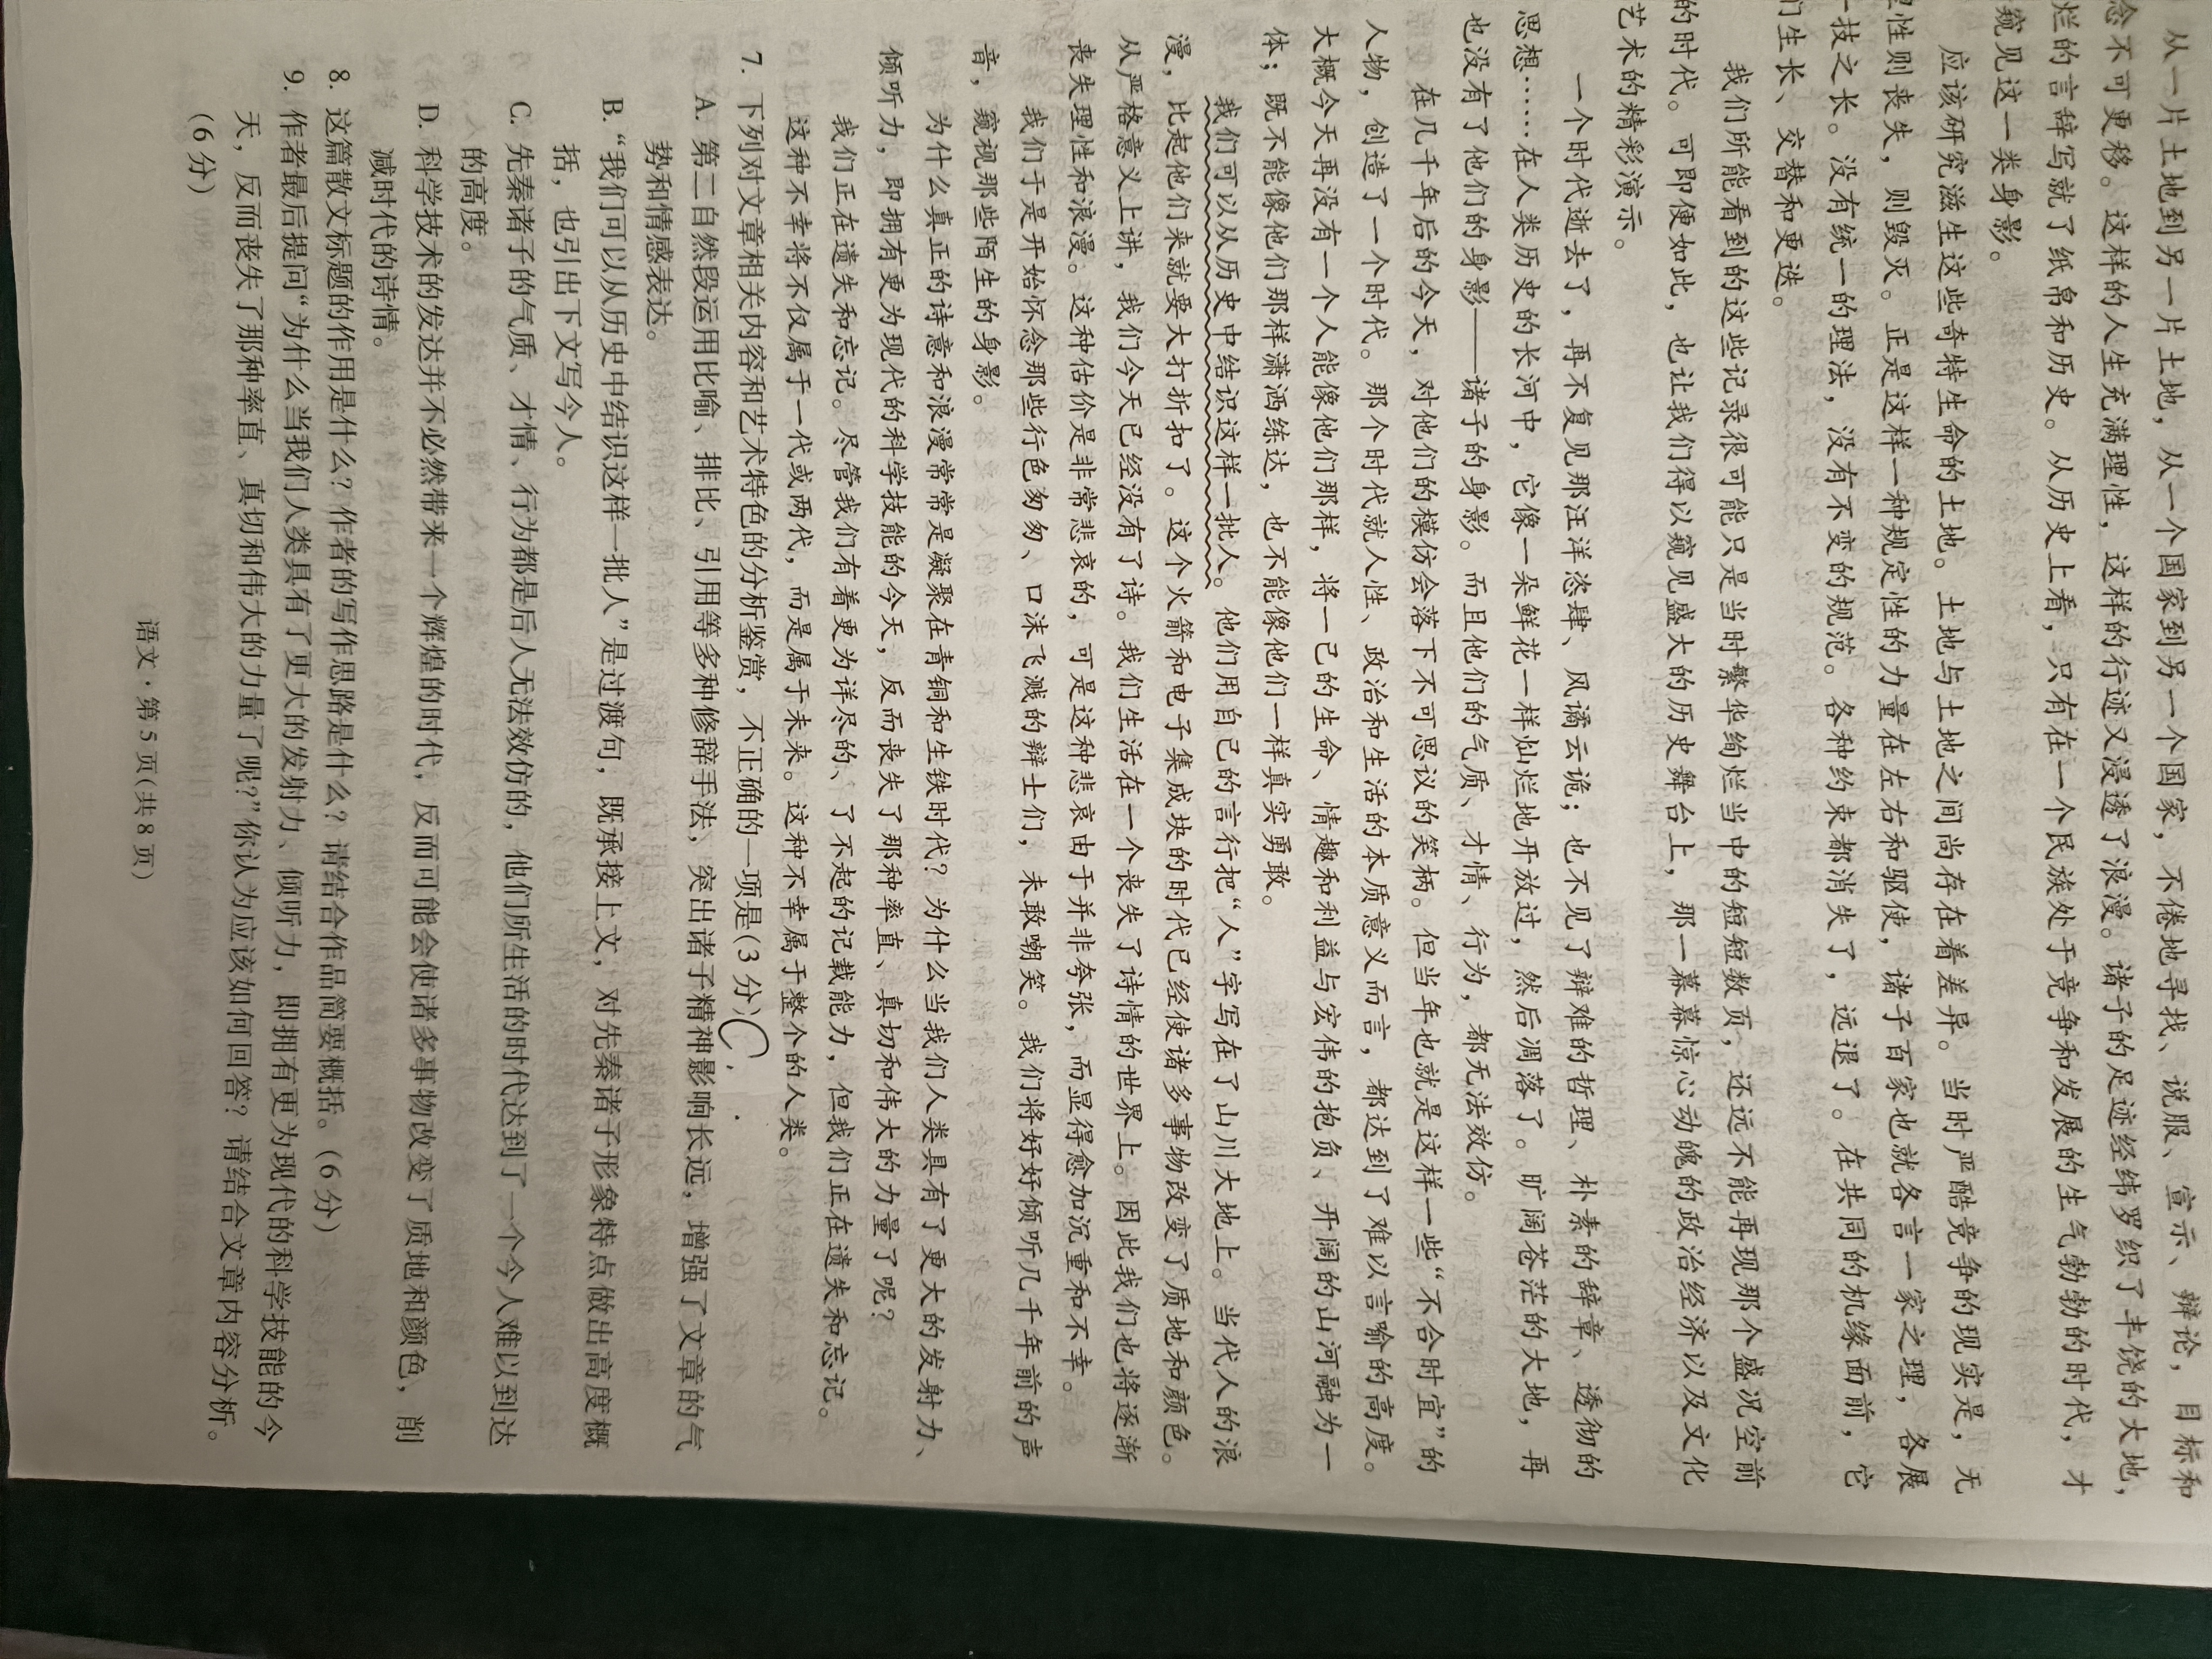 从一片土地到另一片土地，从一个国家到另一个国家，不倦地寻找、说服、宣示、辩论，目标和
念不可更移。这样的人生充满理性，这样的行迹又浸透了浪漫。诸子的足迹经纬罗织了丰饶的大地，
烂的言辞写就了纸帛和历史。从历史上看，只有在一个民族处于竞争和发展的生气勃勃的时代，才
窥见这一类身影。
应该研究滋生这些奇特生命的土地。土地与土地之间尚存在着差异。当时严酷竞争的现实是，无
理性则丧失，则毁灭。正是这样一种规定性的力量在左右和驱使，诸子百家也就各言一家之理，各展
一技之长。没有统一的理法，没有不变的规范。各种约束都消失了，远退了。在共同的机缘面前，它
们生长、交替和更迭。
我们所能看到的这些记录很可能只是当时繁华绚烂当中的短短数页，还远不能再现那个盛况空前
的时代。可即便如此，也让我们得以窥见盛大的历史舞台上，那一幕幕惊心动魄的政治经济以及文化
艺术的精彩演示。
一个时代逝去了，再不复见那汪洋恣肆、风谲云诡；也不见了辩难的哲理、朴素的辞章、透彻的
思想……在人类历史的长河中，它像一朵鲜花一样灿烂地开放过，然后凋落了。旷阔苍茫的大地，再
也没有了他们的身影——诸子的身影。而且他们的气质、才情、行为，都无法效仿。
在几千年后的今天，对他们的模仿会落下不可思议的笑柄。但当年也就是这样一些“不合时宜”的
人物，创造了一个时代。那个时代就人性、政治和生活的本质意义而言，都达到了难以言喻的高度。
大概今天再没有一个人能像他们那样，将一己的生命、情趣和利益与宏伟的抱负、开阔的山河融为一
体；既不能像他们那样潇洒练达，也不能像他们一样真实勇敢。
我们可以从历史中结识这样一批人。他们用自己的言行把“人”字写在了山川大地上。当代人的浪
漫，比起他们来就要大打折扣了。这个火箭和电子集成块的时代已经使诸多事物改变了质地和颜色。
从严格意义上讲，我们今天已经没有了诗。我们生活在一个丧失了诗情的世界上。因此我们也将逐渐
丧失理性和浪漫。这种估价是非常悲哀的，可是这种悲哀由于并非夸张，而显得愈加沉重和不幸。
我们于是开始怀念那些行色匆匆、口沫飞溅的辩士们，未敢嘲笑。我们将好好倾听几千年前的声
音，窥视那些陌生的身影。
为什么真正的诗意和浪漫常常是凝聚在青铜和生铁时代？为什么当我们人类具有了更大的发射力、
倾听力，即拥有更为现代的科学技能的今天，反而丧失了那种率直、真切和伟大的力量了呢？
我们正在遗失和忘记。尽管我们有着更为详尽的、了不起的记载能力，但我们正在遗失和忘记。
这种不幸将不仅属于一代或两代，而是属于未来。这种不幸属于整个的人类。
7. 下列对文章相关内容和艺术特色的分析鉴赏，不正确的一项是(3分)C
A. 第二自然段运用比喻、排比、引用等多种修辞手法，突出诸子精神影响长远，增强了文章的气
势和情感表达。
B. “我们可以从历史中结识这样一批人”是过渡句，既承接上文，对先秦诸子形象特点做出高度概
括，也引出下文写今人。
C. 先秦诸子的气质、才情、行为都是后人无法效仿的，他们所生活的时代达到了一个今人难以到达
的高度。
D. 科学技术的发达并不必然带来一个辉煌的时代，反而可能会使诸多事物改变了质地和颜色，削
减时代的诗情。
8. 这篇散文标题的作用是什么？作者的写作思路是什么？请结合作品简要概括。(6分)
9. 作者最后提问“为什么当我们人类具有了更大的发射力、倾听力，即拥有更为现代的科学技能的今
天，反而丧失了那种率直、真切和伟大的力量了呢？”你认为应该如何回答？请结合文章内容分析。
(6分)
语文·第5页(共8页)